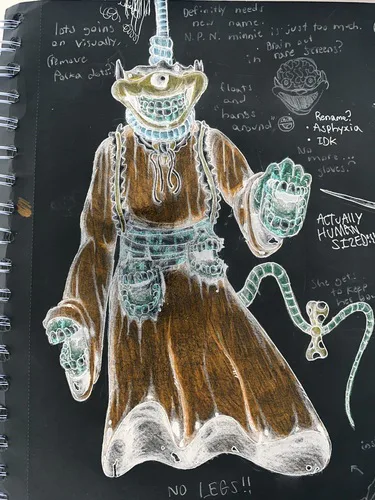 lots going
on visually.
Remove
Polka dots?
Definitly needs
new name.
N.P.N. minnie is just too much.
Brain out
in rare screens?
floats
and
"hangs
around"
Rename?
• Asphyxia
• IDK
No
more...
gloves.
ACTUALLY
HUMAN
SIZED!!
She gets
to keep
her bow
NO LEGS!!